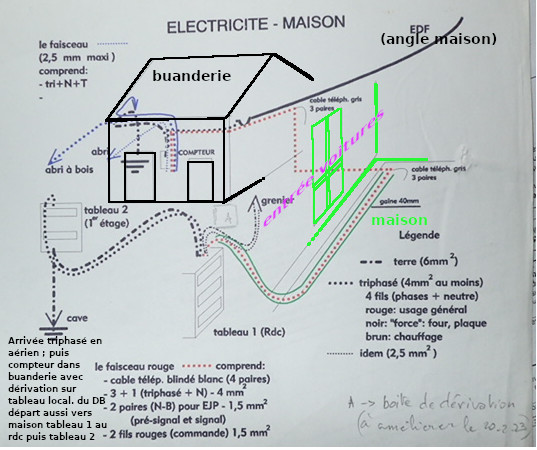 ELECTRICITE - MAISON
EDF
(angle maison)
le faisceau
(2,5 mm maxi )
comprend:
- tri+N+T
-
buanderie
cable téléph. gris
3 paires
abri
COMPTEUR
abri à bois
entrée voitures
A
cable téléph. gris
3 paires
grenier
gaîne 40mm
tableau 2
(1er étage)
A
maison
Légende
terre (6mm²)
triphasé (4mm² au moins)
4 fils (phases + neutre)
rouge: usage général
noir: "force": four, plaque
brun: chauffage
idem (2,5 mm²)
cave
tableau 1 (Rdc)
Arrivée triphasé en
aérien ; puis
compteur dans
buanderie avec
dérivation sur
tableau local. du DB
départ aussi vers
maison tableau 1 au
rdc puis tableau 2
le faisceau rouge comprend:
- cable télép. blindé blanc (4 paires)
- 3 + 1 (triphasé + N) - 4 mm²
- 2 paires (N-B) pour EJP - 1,5 mm²
(pré-signal et signal)
- 2 fils rouges (commande) 1,5 mm²
A -> boîte de dérivation
(à améliorer le 20.2.23)